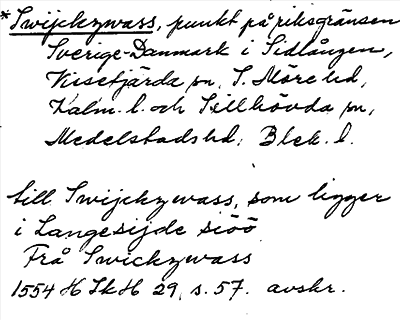 *Swijckzwass, punkt på riksgränsen
Sverige-Danmark i Sidlången,
Vissefjärda sn, S. Möre hd,
Kalm. l. och Sillhövda sn,
Medelstads hd, Blek. l.
till Swijckzwass, som ligger
i Langesijde siöö
Frå Swickzwass
1554 H Sk H 29, s. 57. avskr.